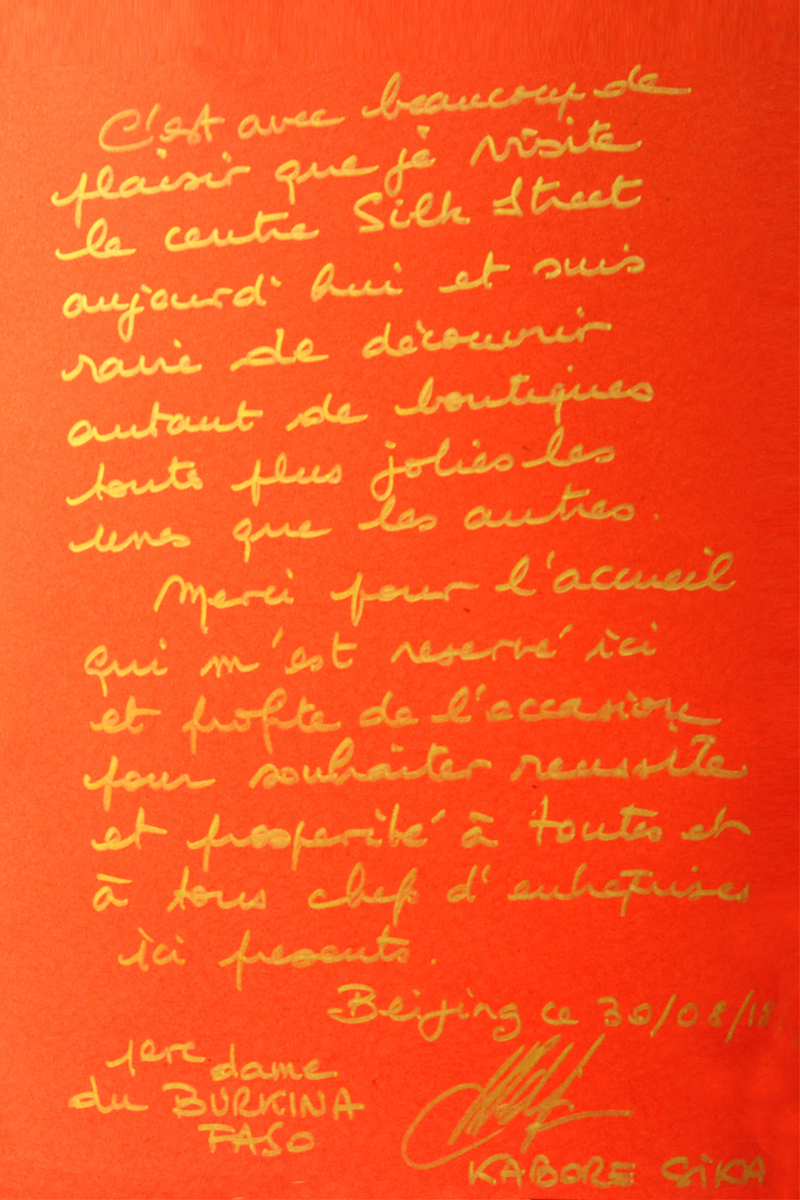 C'est avec beaucoup de
plaisir que je visite
le centre Silk Street
aujourd'hui et suis
ravie de découvrir
autant de boutiques
toute plus jolies les
unes que les autres.
Merci pour l'accueil
qui m'est reservé ici
et profite de l'occasion
pour souhaiter reussite
et prosperité à toutes et
à tous chefs d'entreprises
ici presents.
Beijing ce 30/08/18
1ere dame
du BURKINA
FASO
KABORE SIKA